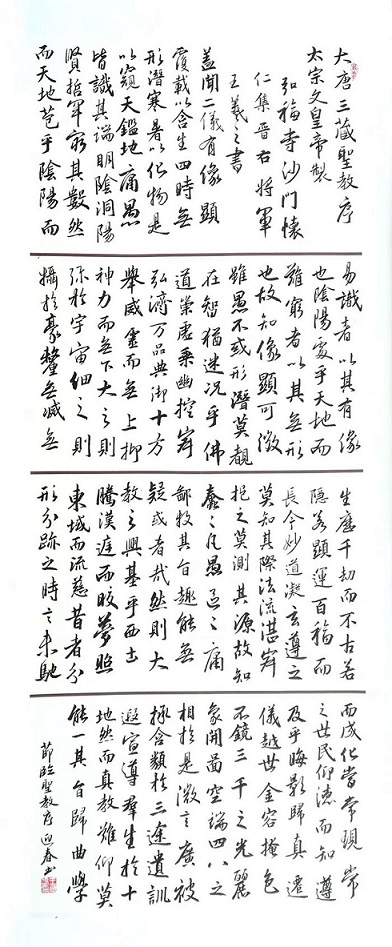 大唐三藏聖教序
太宗文皇帝製
弘福寺沙門懷
仁集晉右將軍
王羲之書
蓋聞二儀有像顯
覆載以含生四時無
形潛寒暑以化物是
以窺天鑑地庸愚
皆識其端明陰洞陽
賢哲罕窮其數然
而天地苞乎陰陽而
易識者以其有像
也陰陽處乎天地而
難窮者以其無形
也故知像顯可徵
雖愚不惑形潛莫覩
在智猶迷況乎佛
道崇虛乘幽控寂
弘濟万品典御十方
舉威靈而無上抑
神力而無下大之則
弥於宇宙細之則
攝於豪釐無滅無
生歷千劫而不古若
隱若顯運百福而
長今妙道凝玄遵之
莫知其際法流湛寂
挹之莫測其源故知
蠢蠢凡愚區區庸
鄙投其旨趣能無
疑或者哉然則大
教之興基乎西土
騰漢庭而皎夢照
東域而流慈昔者分
形分跡之時言未馳
而成化當常現常
之世民仰德而知遵
及乎晦影歸真遷
儀越世金容掩色
不鏡三千之光麗
象開圖空端四八之
相於是微言廣被
拯含類於三途遺訓
遐宣導群生於十
地然而真教難仰莫
能一其旨歸曲學
節臨聖教序 迎春书